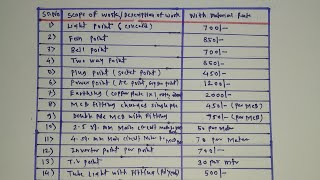 Sr.No Scope of work/Description of work With Material Rate
1) Light Point (conceald) 700/-
2) Fan point 850/-
3) Bell point 700/-
4) Two way point 850/-
5) Plug point (socket point) 450/-
6) Power point (AC point, 1200/-
7) Earthing (copper plate 1x1 2000/-
8) MCB fitting charges single pole 450/- (per MCB)
9) Double pole MCB with fitting 950/- (per MCB)
10) 2.5 sq. mm Main circuit 50 per meter
11) 4 sq. mm Main 70 per Meter
12) Inverter point per point 700/-
13) T.V point 30 per mtr
14) Tube Light with fitting 500/-